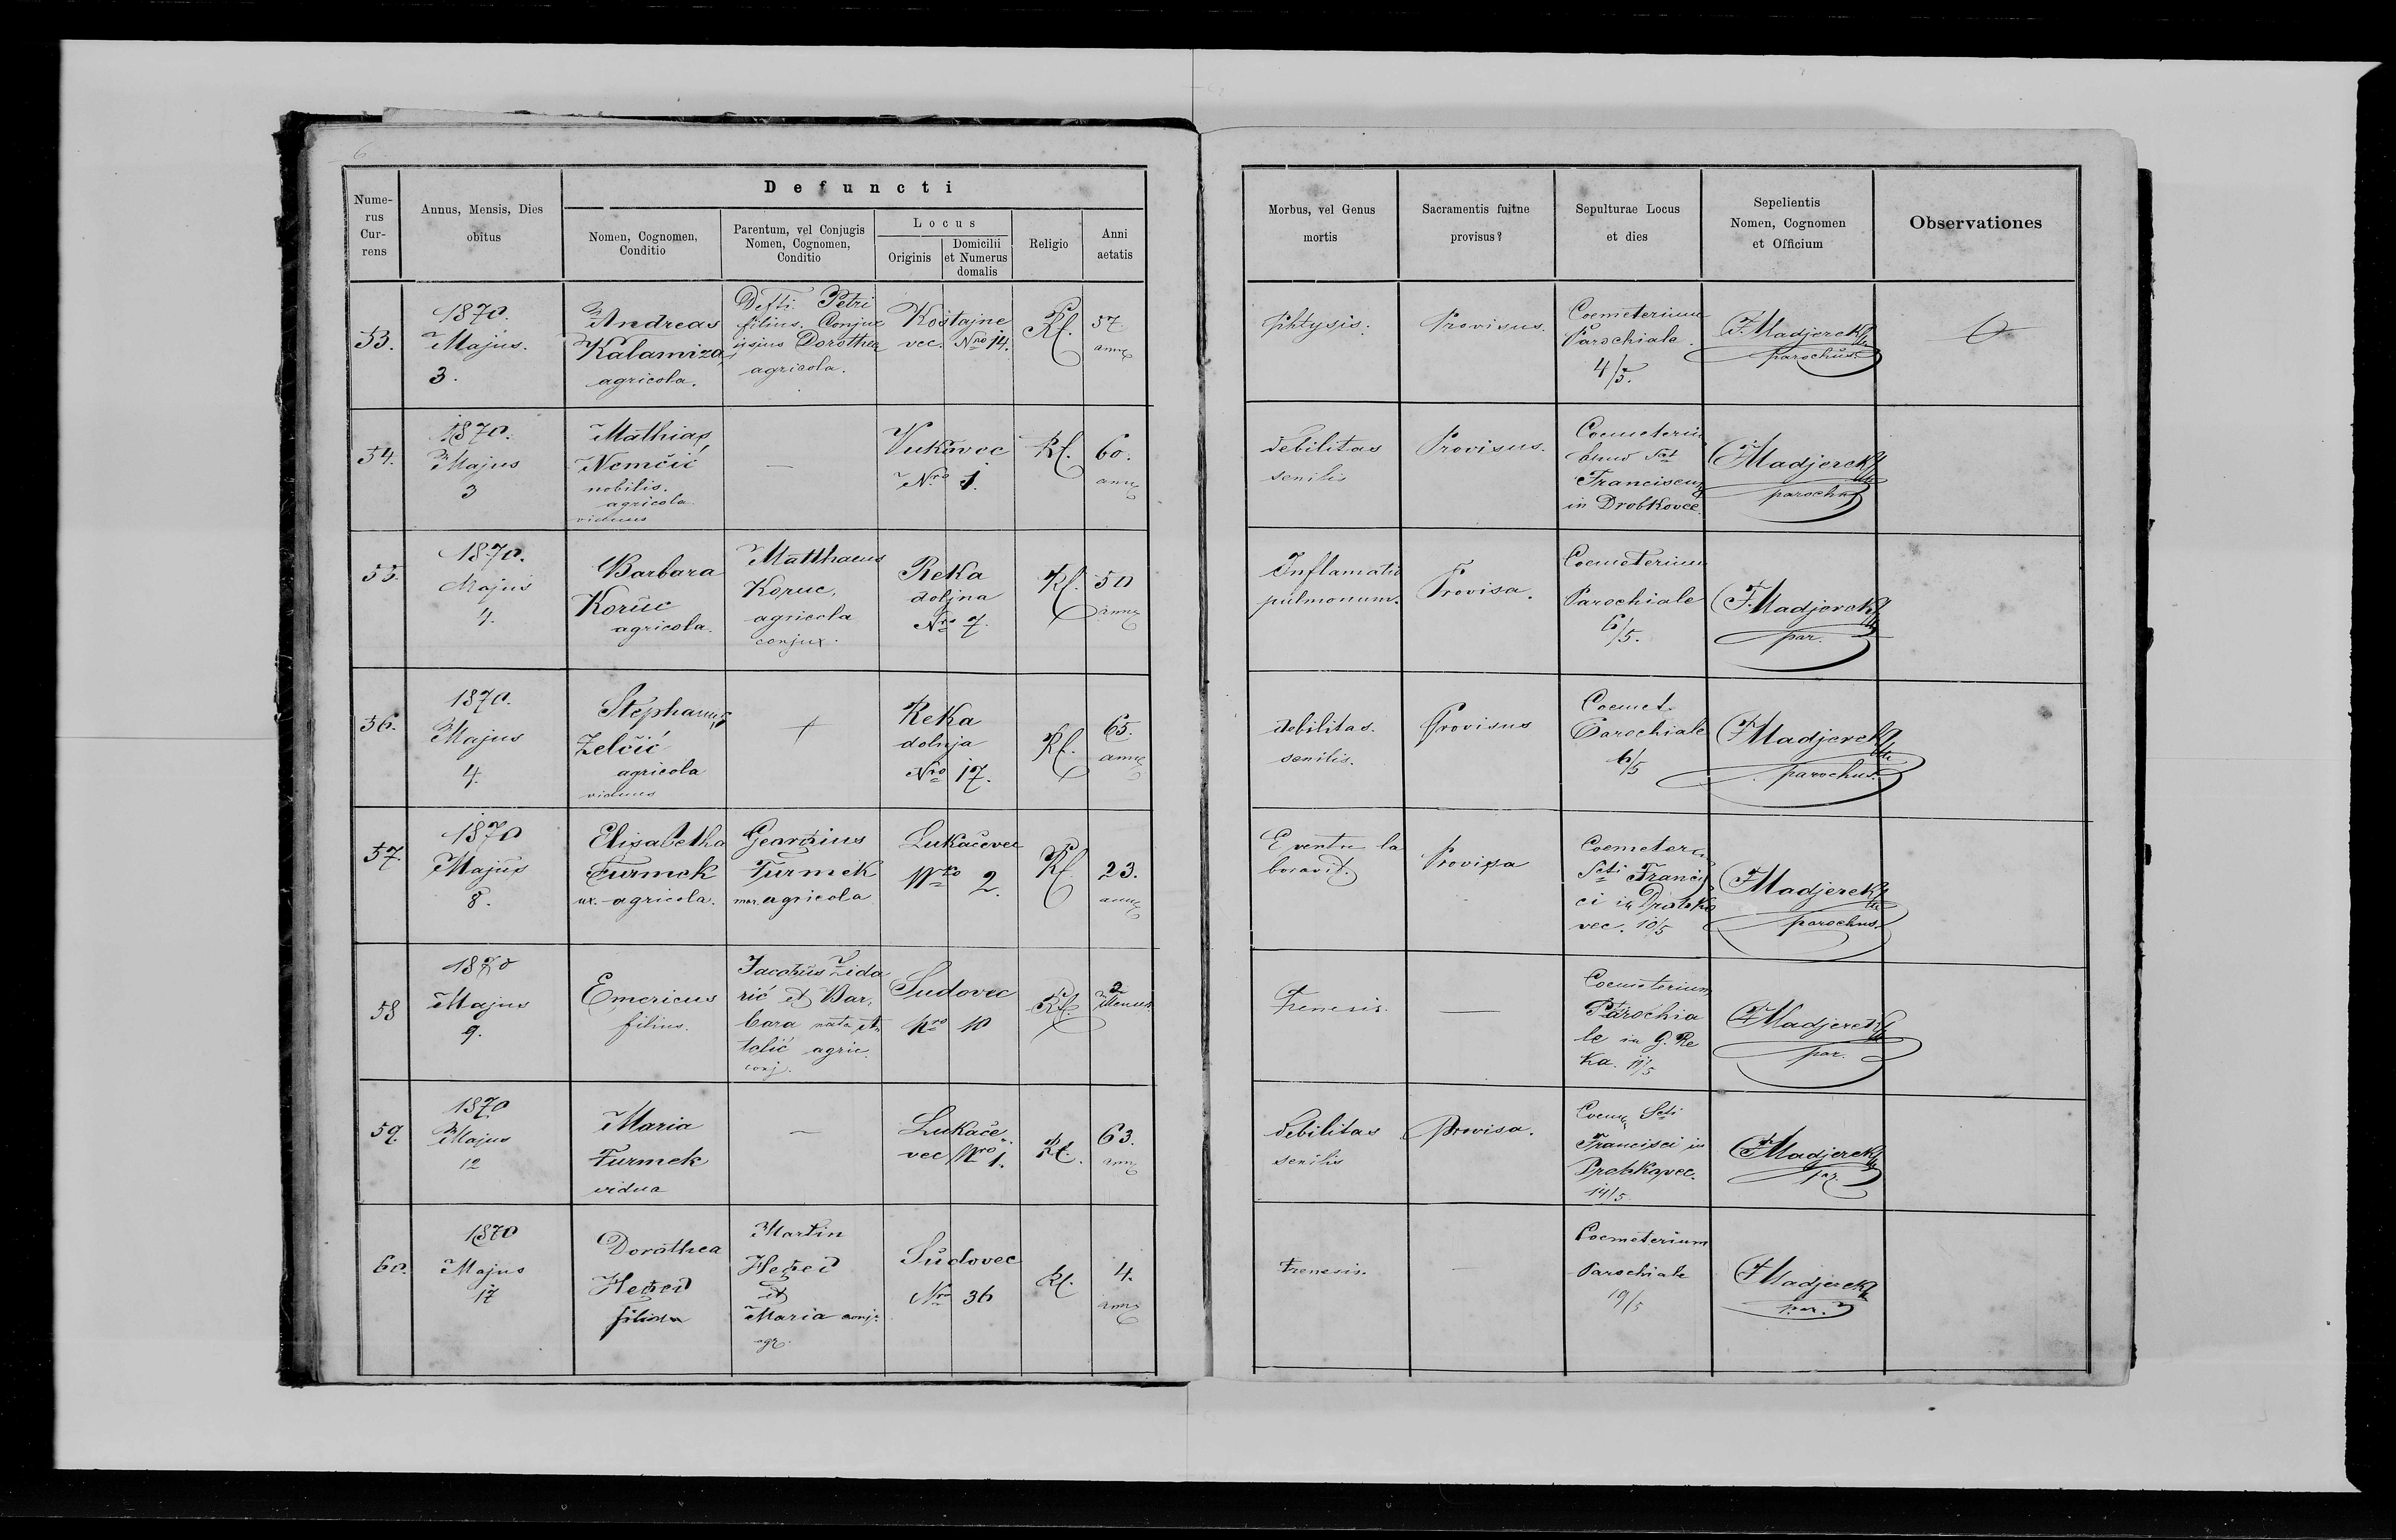 6
Defuncti
Nume-
rus
Cur-
rens
Annus, Mensis, Dies
obitus
Nomen, Cognomen,
Conditio
Parentum, vel Conjugis
Nomen, Cognomen,
Conditio
Locus
Originis
Domicilii
et Numerus
domalis
Religio
Anni
aetatis
Morbus, vel Genus
mortis
Sacramentis fuitne
provisus?
Sepulturae Locus
et dies
Sepelientis
Nomen, Cognomen
et Officium
Observationes
53.
1870.
Majus.
3.
Andreas
Kalamiza,
agricola.
Defti Petri
filius. Conjux
ipsius Dorothea
agricola.
Kostajne
vec. Nro 14.
Rf.
57
Phtysis.
Provisus.
Coemeterium
Parochiale.
4/5.
F. Madjerek
parochus.
54.
1870.
Majus
3
Mathias
Nemčić
nobilis.
agricola
viduus
—
Vukovec
Nro 1.
Rf.
60.
debilitas
senilis
Provisus.
Franciscum
in Drobkovce.
F Madjerek
parochus
55.
1870.
Majus
4.
Barbara
Koruc
agricola.
Matthaeus
Koruc,
agricola
conjux.
Reka
doljna
Nro 7.
Rf.
50
Inflamatio
pulmonum.
Provisa.
Coemeterium
Parochiale
6/5.
F. Madjerek
par.
56.
1870.
Majus
4.
Stephanus
Zelčić
agricola
viduus
Reka
dolnja
Nro 17.
Rf.
65.
debilitas.
senilis.
Provisus
Coemet.
Parochiale
6/5
F Madjerek
parochus.
57.
1870
Majus
8.
Elisabetha
Furmek
ux. agricola.
Georgius
Furmek
mar. agricola
Lukačevec
Nro 2.
Rf
23.
E ventre la
boravit.
Provisa
Scti Francis
ci in Drobko
vec. 10/5
F Madjerek
parochus.
58
1870
Majus
9.
Emericus
filius.
Jacobus Zida
rić et Bar,
bara nata
tolić agric.
conj.
Sudovec
Nro 10
Rf.
2
Frenesis.
—
Coemeterium
Parochia
le in G. Re
ka. 11/5
F Madjerek
par.
59.
1870
Majus
12
Maria
Furmek
vidua
—
Lukače
vec Nro 1.
Rf.
63.
debilitas
senilis
Provisa.
Scti
Francisci in
Drobkovec.
14/5
F Madjerek
par.
60.
1870
Majus
17
Dorothea
filia
Martin
et
Maria conj.
agr.
Sudovec
Nro 36
Rf.
4.
Frenesis.
—
Coemeterium
Parochiale
19/5
F Madjerek
par.